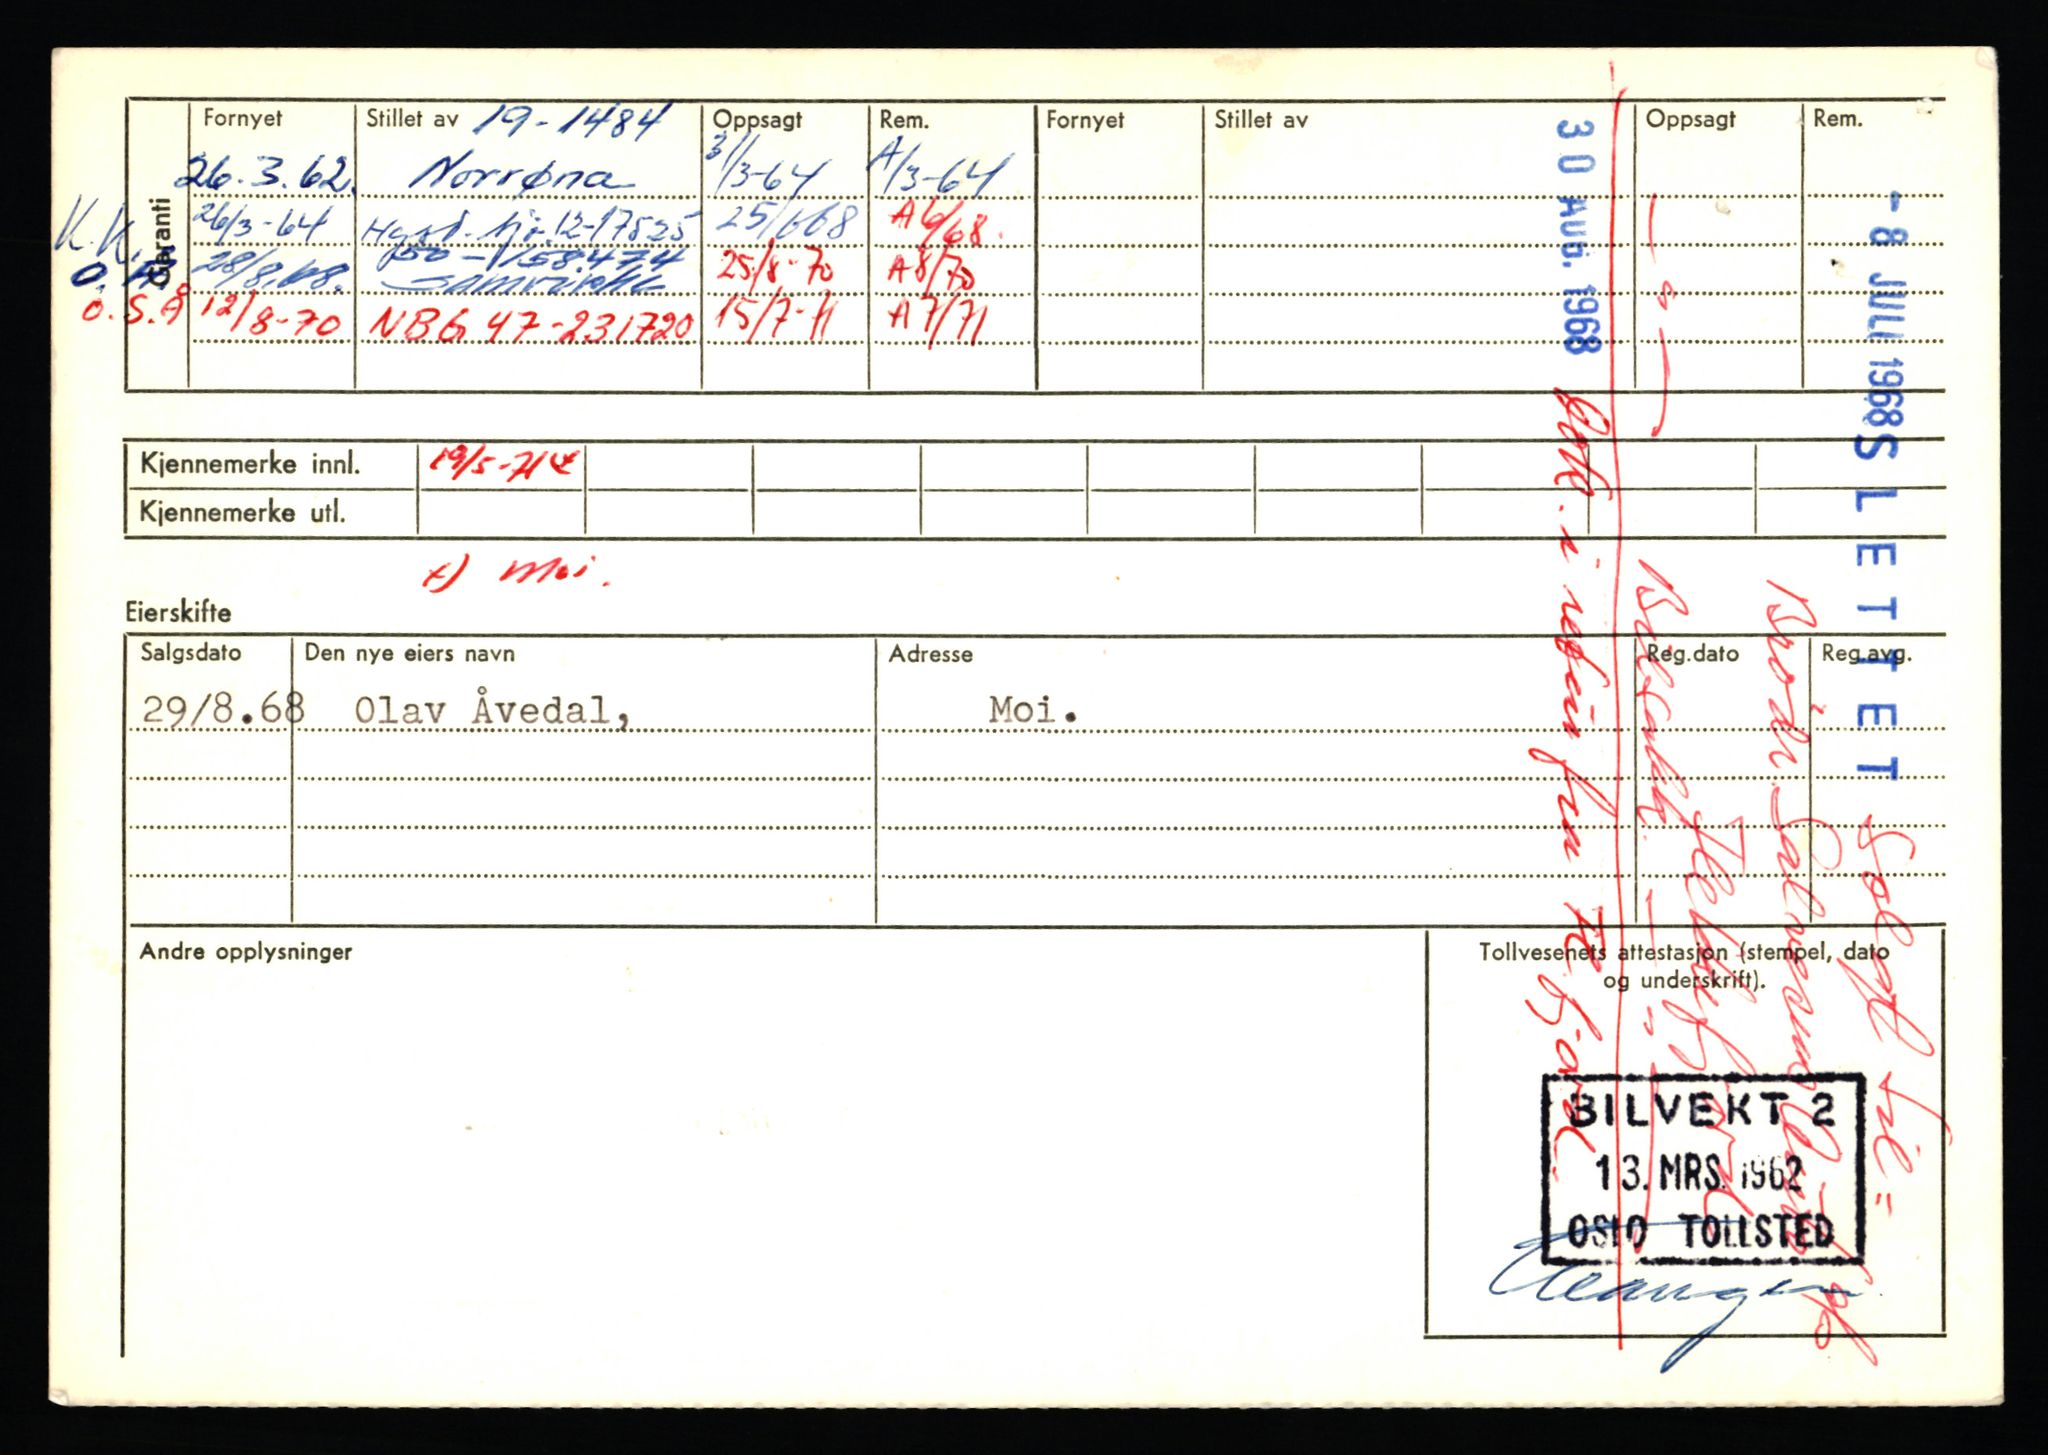 Garanti
Fornyet Stillet av 19-1484 Oppsagt Rem. Fornyet Stillet av Oppsagt Rem.
26.3.62. Norrøna 31/3-64 A/3-64
K.K. 26/3-64 12-17525 25/6-68 A 6/68.
28/8.68. 50-158.474 Samvirke 25/8-70 A 8/70
O.S.Å 12/8-70 NBG 47-231720 15/7-71 A 7/71
Kjennemerke innl. 19/5-71 x
Kjennemerke utl.
x) Moi.
Eierskifte
Salgsdato Den nye eiers navn Adresse Reg.dato Reg.avg.
29/8.68 Olav Åvedal, Moi.
Andre opplysninger
Tollvesenets attestasjon (stempel, dato
og underskrift).
BILVEKT 2
13. MRS. 1962
OSLO TOLLSTED
30 AUG. 1968
- 8 JULI 1968 SLETTET
Solgt til =
Brødr.
Flekkefjord